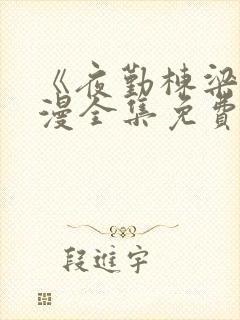 《夜勤栋梁
漫全集免費
段進宇